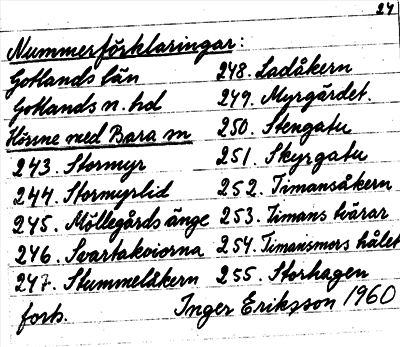 24
Nummerförklaringar:
Gotlands län
Gotlands n. hd
Hörsne med Bara sn
243. Stormyr
244. Stormyrlid
245. Möllegårds änge
246. Svartakviorna
247. Stummelåkern
forts.
248. Ladåkern
249. Myrgärdet.
250. Stengatu
251. Skyrgatu
252. Timansåkern
253. Timans tvärar
254. Timansmors hålet
255. Storhagen
Inger Eriksson 1960